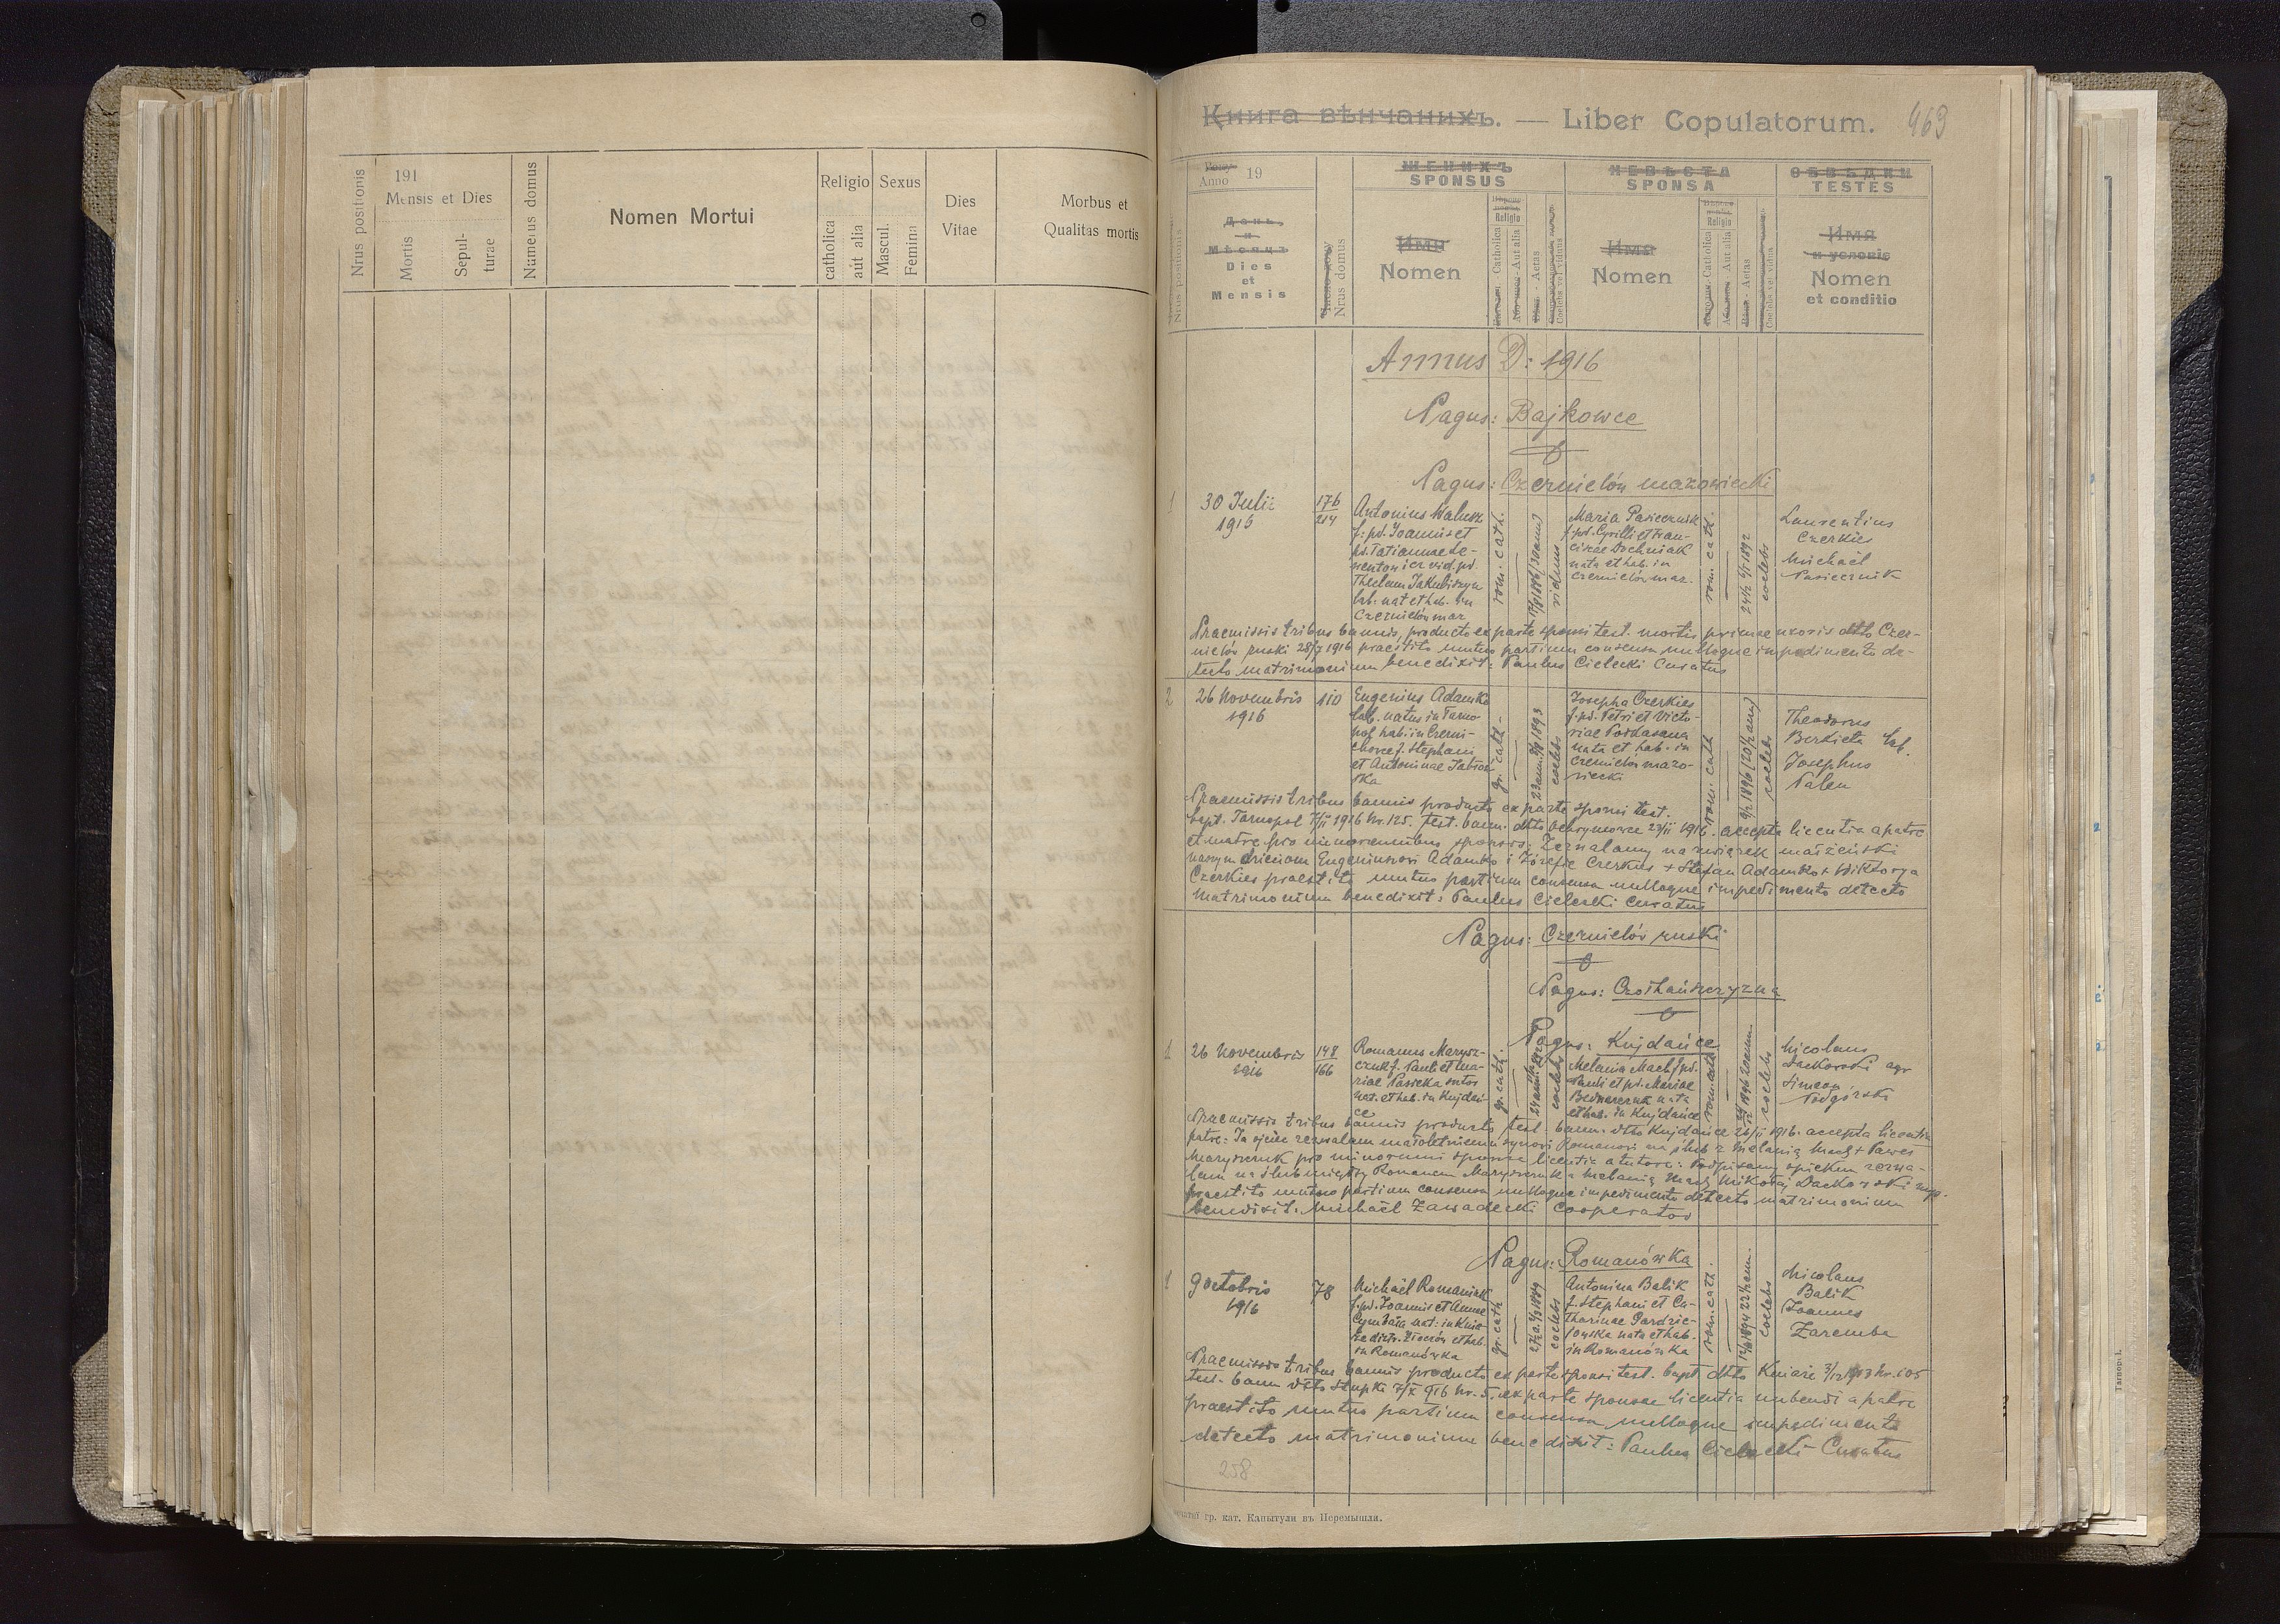 Nrus positionis
191
Mensis et Dies
Mortis
Sepulturae
Numerus domus
Nomen Mortui
Religio
catholica
aut alia
Sexus
Mascul.
Femina
Dies
Vitae
Morbus et
Qualitas mortis
Книга вѣнчанихъ. — Liber Copulatorum. 463
Року
Anno 19
День
и
Мѣсяцъ
Dies
et
Mensis
Nrus positionis
Nrus domus
ЖЕНИХЪ
SPONSUS
Имя
Nomen
Religio
Catholica
Aut alia
Aetas
Coelebs vel viduus
НЕВѢСТА
SPONSA
Имя
Nomen
Religio
Catholica
Aut alia
Aetas
Coelebs vel vidua
СВѢДКИ
TESTES
Имя
и условіє
Nomen
et conditio
Annus D: 1916
Pagus: Bajkowce
Pagus: Czernielów mazowiecki
1
30 Julii
1916
176
214
Antonius Walusz
f. pd. Joannis et
pd. Tatiannae Se-
vid. pd.
Theclam Jakubiszyn
lab. nat et hab. in
Czernielów maz
rom. cath.
viduus
Maria Pasiecznik
f. pd. Cyrilli et Fran-
ciscae Dochniak
nata et hab. in
Czernielów maz.
rom. cath.
24½
1892
coelebs
Laurentius
Czerkies
Michaël
Pasiecznik
Praemissis tribus bannis, producto ex parte sponsi test. mortis primae uxoris dtto Czer-
nielów ruski 28/7 1916 praestito mutuo partium consensu nulloque impedimento de-
tecto matrimonium benedixit: Paulus Cielecki Curatus
2
26 Novembris
1916
110
Eugenius Adamko
lab. natus in Tarno-
pol hab. in Czerni-
f. Stephani
et Antoninae
gr. cath.
23 ann.
1893
coelebs
Josepha Czerkies
f. pd. Petri et Victo-
riae Podkasana
nata et hab. in
Czernielów mazo-
wiecki
rom. cath
1896
coelebs
Theodorus
Berkieta lab.
Josephus
Palen
Praemissis tribus bannis producto ex parte sponsi test.
bapt. Tarnopol 7/II 1916 Nr. 125. test. bann. dtto Ochrymowce 23/II 1916. accepta licentia a patre
et matre pro minorennibus sponsis: Zezwalamy na związek małżeński
naszym dzieciom Eugeniuszowi Adamko i Józefie Czerkies + Stefan Adamko + Wiktorya
Czerkies praestito mutuo partium consensu nulloque impedimento detecto
matrimonium benedixit: Paulus Cielecki Curatus
Pagus: Czernielów ruski
Pagus: Czołhańszczyzna
Pagus: Kujdańce
1
26 Novembris
1916
148
166
Romanus Marysz-
czuk f. Pauli et Ma-
riae Passeka sutor
nat. et hab. in Kujdań-
ce
gr. cath.
coelebs
Melania Mach f. pd.
Pauli et pd. Mariae
Bednarczuk nata
et hab. in Kujdańce
rom. cath.
1896 20 ann.
coelebs
Nicolaus
Daćkowski agr
Simeon
Podgórski
Praemissis tribus bannis producto test. bann. dtto Kujdańce 26/II 1916. accepta licentia
patre: Ja ojciec zezwalam małoletniemu synowi Romanowi na ślub z Melanią Mach + Paweł
Maryszczuk pro minorenni sponsa licentia a tutore: Podpisany opiekun zezwa-
lam na ślub między Romanem Maryszczuk a Melanią Mach Mikołaj Daćkowski mp.
praestito mutuo partium consensu nulloque impedimento detecto matrimonium
benedixit: Michaël Zawadecki Cooperator
Pagus: Romanówka
1
9 Octobris
1916
78
Michaël Romaniuk
f. pd. Joannis et Annae
Cymbała nat: in Knia-
że distr. Złoczów et hab.
in Romanówka
gr. cath
1889
coelebs
Antonina Balik
f. Stephani et Ca-
tharinae Pardzie-
łowska nata et hab.
in Romanówka
rom. cath.
1894 22½ ann.
coelebs
Nicolaus
Balik
Joannes
Zaremba
Praemissis tribus bannis producto ex parte sponsi test. bapt. dtto Kniaże 3/12 1913 Nr. 605
test. bann dtto Stupki 7/X 916 Nr. 5, ex parte sponsae licentia nubendi a patre
praestito mutuo partium consensu nulloque impedimento
detecto matrimonium benedixit: Paulus Cielecki Curatus
258
гр. кат. Капытули въ Перемышли.
Tarnopol.